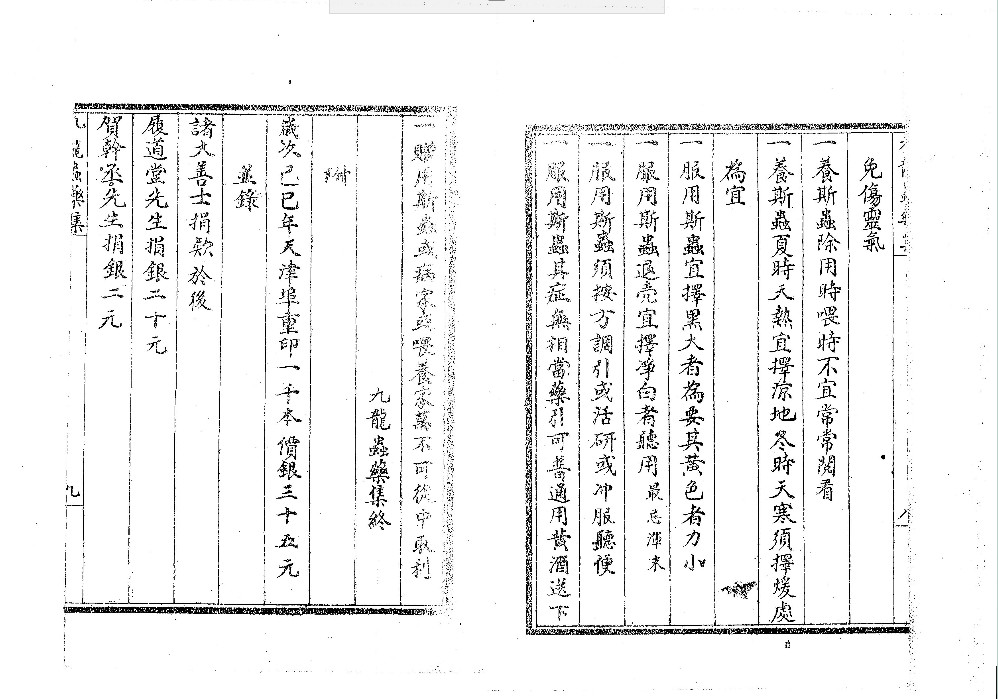 免傷靈氣
一養斯蟲除用時喂時不宜常常閱看
一養斯蟲夏時天熱宜擇涼地冬時天寒須擇煖處
為宜
一服用斯蟲宜擇黑大者為要其黃色者力小
一服用斯蟲退壳宜擇淨白者聽用最忌渾末
一服用斯蟲須按方調引或活研或冲服聽便
一服用斯蟲其症無相當藥引可普通用黃酒送下
八
一贈用斯蟲或病家或喂養家萬不可從中取利
九龍蟲藥集終
歲次己巳年天津埠重印一千本價銀三十五元
並錄
諸大善士捐款於後
履道堂先生捐銀二十元
賀幹丞先生捐銀二元
九龍蟲藥集
九